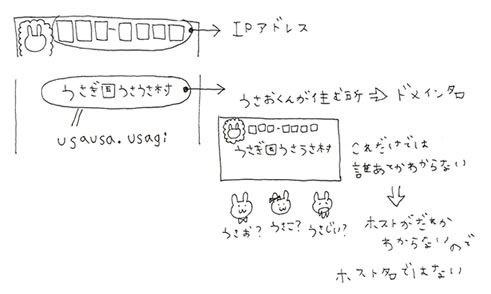 IPアドレス
うさぎ国うさうさ村
usausa.usagi
うさおくんが住む所 ⇒ ドメイン名
うさぎ国うさうさ村
これだけでは
誰あてかわからない
うさお?
うさこ?
うさじい?
ホストがだれか
わからないので
ホスト名ではない